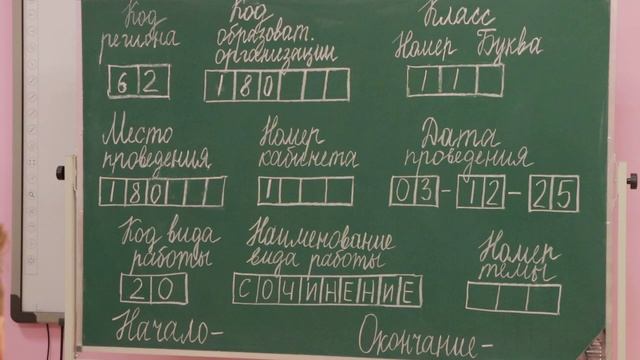 Код региона
62
Код образоват. организации
180
Класс
Номер Буква
11
Место проведения
180
Номер кабинета
1
Дата проведения
03-12-25
Код вида работы
20
Наименование вида работы
СОЧИНЕНИЕ
Номер темы
Начало-
Окончание-